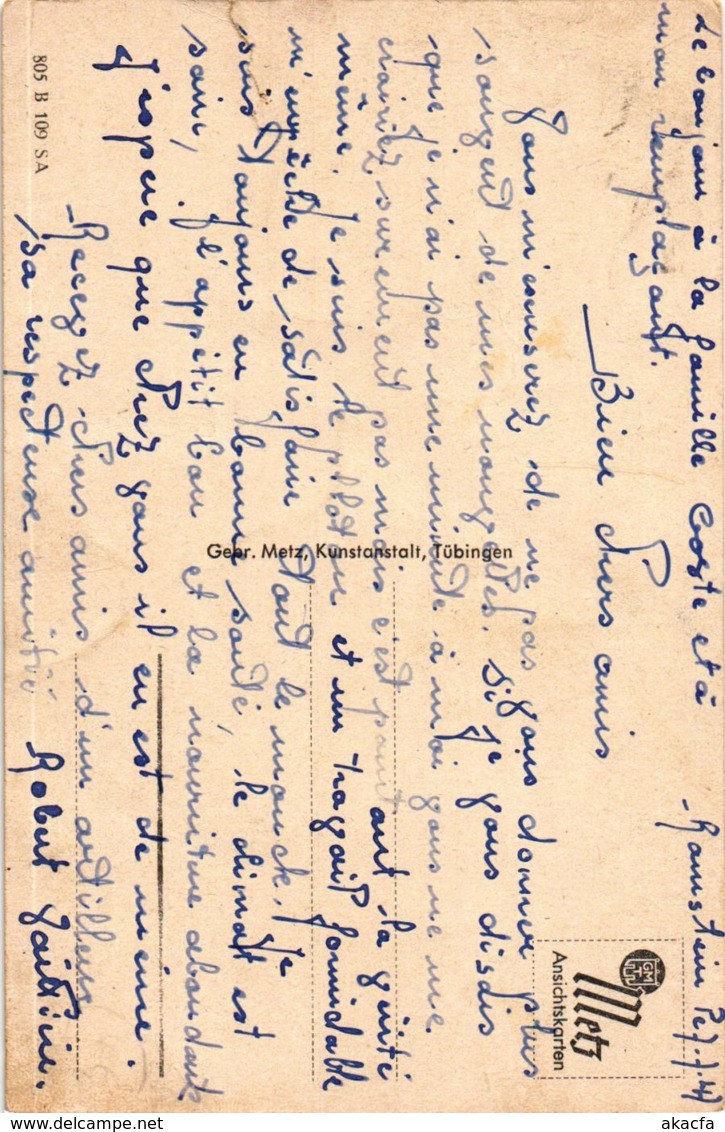 Le bonjour à la famille Coste et à
mon remplaçant.
Ramstein le 7.7.47
Bien chers amis
Vous m'excuserez de ne pas vous donner plus
souvent de mes nouvelles. Si je vous disais
que je n'ai pas une minute à moi vous ne me
croiriez surement pas mais c'est pourtant la vérité
même. Je suis le peloton et un travail formidable
m'empêche de satisfaire tout le monde. Je
suis toujours en bonne santé, le climat est
sain, l'appétit bon et la nourriture abondante
J'espère que chez vous il en est de même.
Recevez chers amis d'un artilleur
sa respectueuse amitié
Robert
805 B 109 SA
Gebr. Metz, Kunstanstalt, Tübingen
GM
Metz
Ansichtskarten
akacfa
www.akacfa.com